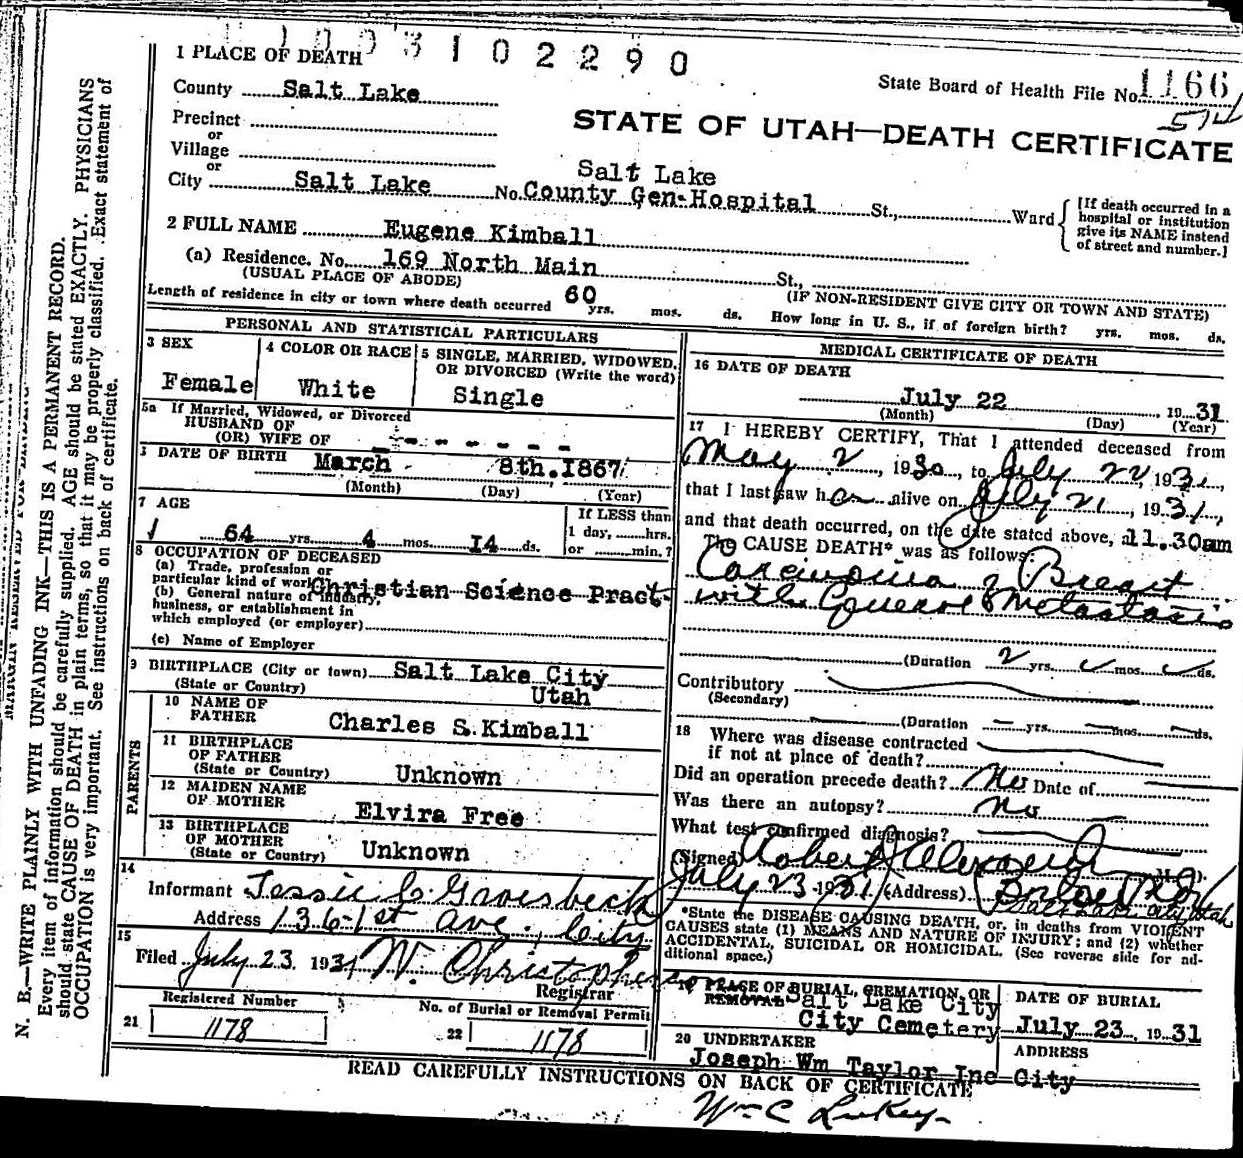 1 0 0 3 1 0 2 2 9 0
1 PLACE OF DEATH
State Board of Health File No. 1166
574
County Salt Lake
STATE OF UTAH—DEATH CERTIFICATE
Precinct
or
Village
or
Salt Lake
City Salt Lake No. County Gen-Hospital St., Ward
[If death occurred in a
hospital or institution
give its NAME instead
of street and number.]
2 FULL NAME Eugene Kimball
(a) Residence. No. 169 North Main St.,
(USUAL PLACE OF ABODE) (IF NON-RESIDENT GIVE CITY OR TOWN AND STATE)
Length of residence in city or town where death occurred 60 yrs. mos. ds. How long in U. S., if of foreign birth? yrs. mos. ds.
PERSONAL AND STATISTICAL PARTICULARS
3 SEX
Female
4 COLOR OR RACE
White
5 SINGLE, MARRIED, WIDOWED,
OR DIVORCED (Write the word)
Single
5a If Married, Widowed, or Divorced
HUSBAND OF
(OR) WIFE OF
DATE OF BIRTH March 8th. 1867
(Month) (Day) (Year)
7 AGE
64 yrs. 4 mos. 14 ds.
If LESS than
1 day, hrs.
or min.?
8 OCCUPATION OF DECEASED
(a) Trade, profession or
particular kind of work Christian Science Pract-
(b) General nature of industry,
business, or establishment in
which employed (or employer)
(c) Name of Employer
9 BIRTHPLACE (City or town) Salt Lake City
(State or Country) Utah
PARENTS
10 NAME OF
FATHER Charles S. Kimball
11 BIRTHPLACE
OF FATHER
(State or Country) Unknown
12 MAIDEN NAME
OF MOTHER Elvira Free
13 BIRTHPLACE
OF MOTHER
(State or Country) Unknown
14
Informant Jessie C. Groesbeck
Address 136-1st Ave., City
15
Filed July 23 1931 W. Christopherson
Registrar
Registered Number
21 1178
No. of Burial or Removal Permit
22 1178
MEDICAL CERTIFICATE OF DEATH
16 DATE OF DEATH
July 22, 1931
(Month) (Day) (Year)
17 I HEREBY CERTIFY, That I attended deceased from
May 2, 1930, to July 22, 1931,
that I last saw her alive on July 21, 1931,
and that death occurred, on the date stated above, a 11.30am
The CAUSE DEATH* was as follows:
Carcinoma of Breast
with General Metastasis
(Duration 2 yrs. mos. ds.
Contributory
(Secondary)
(Duration yrs. mos. ds.
18 Where was disease contracted
if not at place of death?
Did an operation precede death? No Date of
Was there an autopsy? no
What test confirmed diagnosis?
(Signed) Robert Alexander M. D.
July 23 1931 (Address)
*State the DISEASE CAUSING DEATH, or, in deaths from VIOLENT
CAUSES state (1) MEANS AND NATURE OF INJURY; and (2) whether
ACCIDENTAL, SUICIDAL OR HOMICIDAL. (See reverse side for ad-
ditional space.)
19 PLACE OF BURIAL, CREMATION, OR
REMOVAL Salt Lake City
City Cemetery
DATE OF BURIAL
July 23, 1931
20 UNDERTAKER
Joseph Wm Taylor Inc
ADDRESS
City
READ CAREFULLY INSTRUCTIONS ON BACK OF CERTIFICATE
Wm C
N. B.—WRITE PLAINLY WITH UNFADING INK—THIS IS A PERMANENT RECORD.
Every item of information should be carefully supplied. AGE should be stated EXACTLY. PHYSICIANS
should state CAUSE OF DEATH in plain terms, so that it may be properly classified. Exact statement of
OCCUPATION is very important. See instructions on back of certificate.